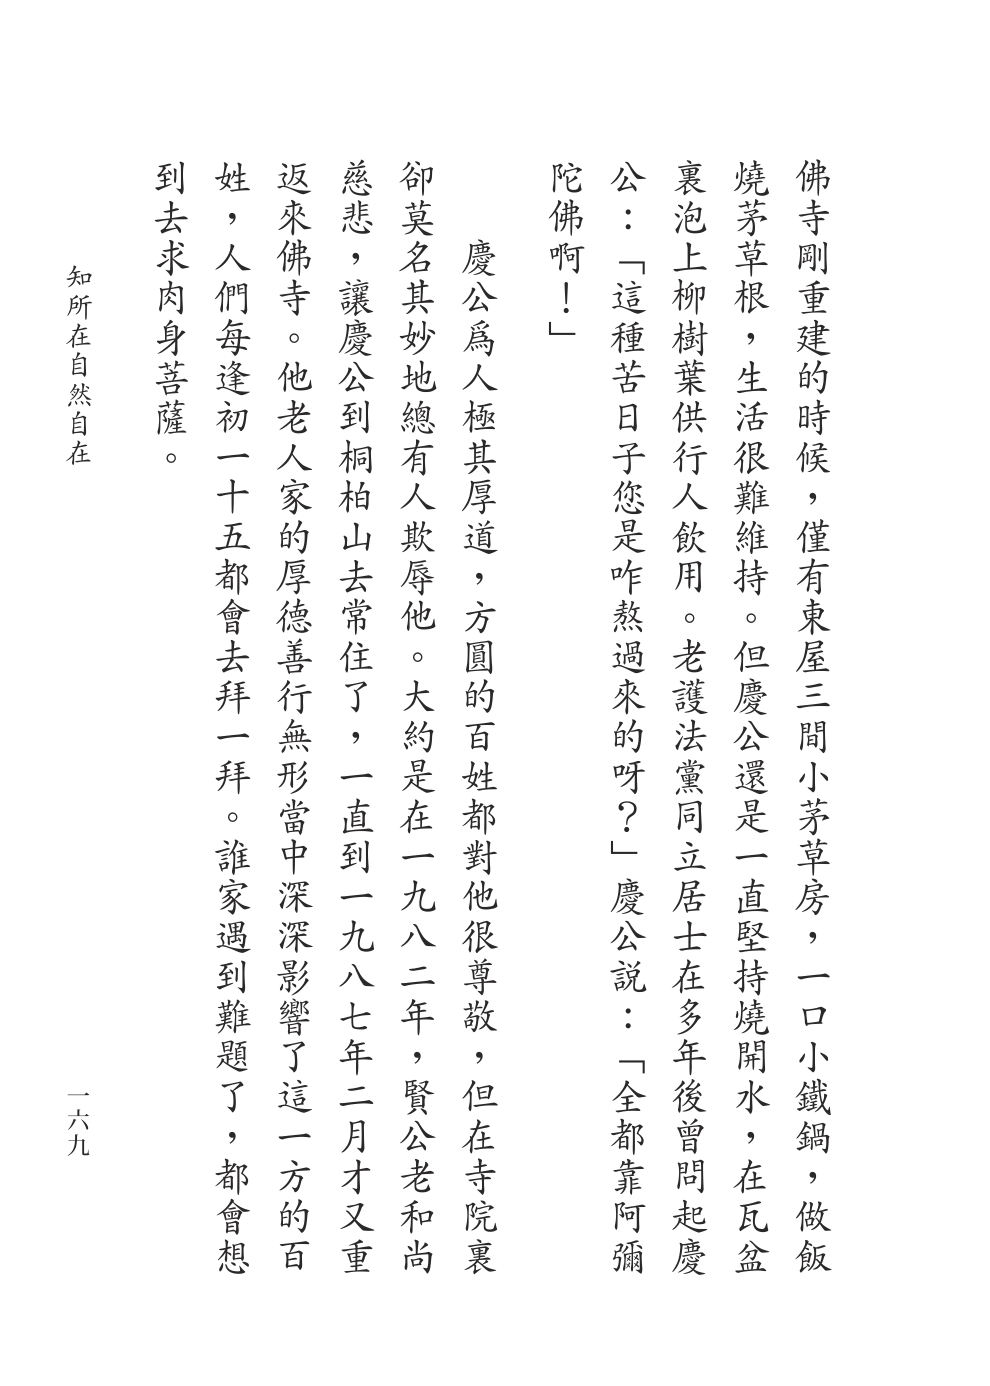 佛寺剛重建的時候，僅有東屋三間小茅草房，一口小鐵鍋，做飯
燒茅草根，生活很難維持。但慶公還是一直堅持燒開水，在瓦盆
裏泡上柳樹葉供行人飲用。老護法黨同立居士在多年後曾問起慶
公：「這種苦日子您是咋熬過來的呀？」慶公説：「全都靠阿彌
陀佛啊！」
慶公爲人極其厚道，方圓的百姓都對他很尊敬，但在寺院裏
卻莫名其妙地總有人欺辱他。大約是在一九八二年，賢公老和尚
慈悲，讓慶公到桐柏山去常住了，一直到一九八七年二月才又重
返來佛寺。他老人家的厚德善行無形當中深深影響了這一方的百
姓，人們每逢初一十五都會去拜一拜。誰家遇到難題了，都會想
到去求肉身菩薩。
知所在自然自在
一六九